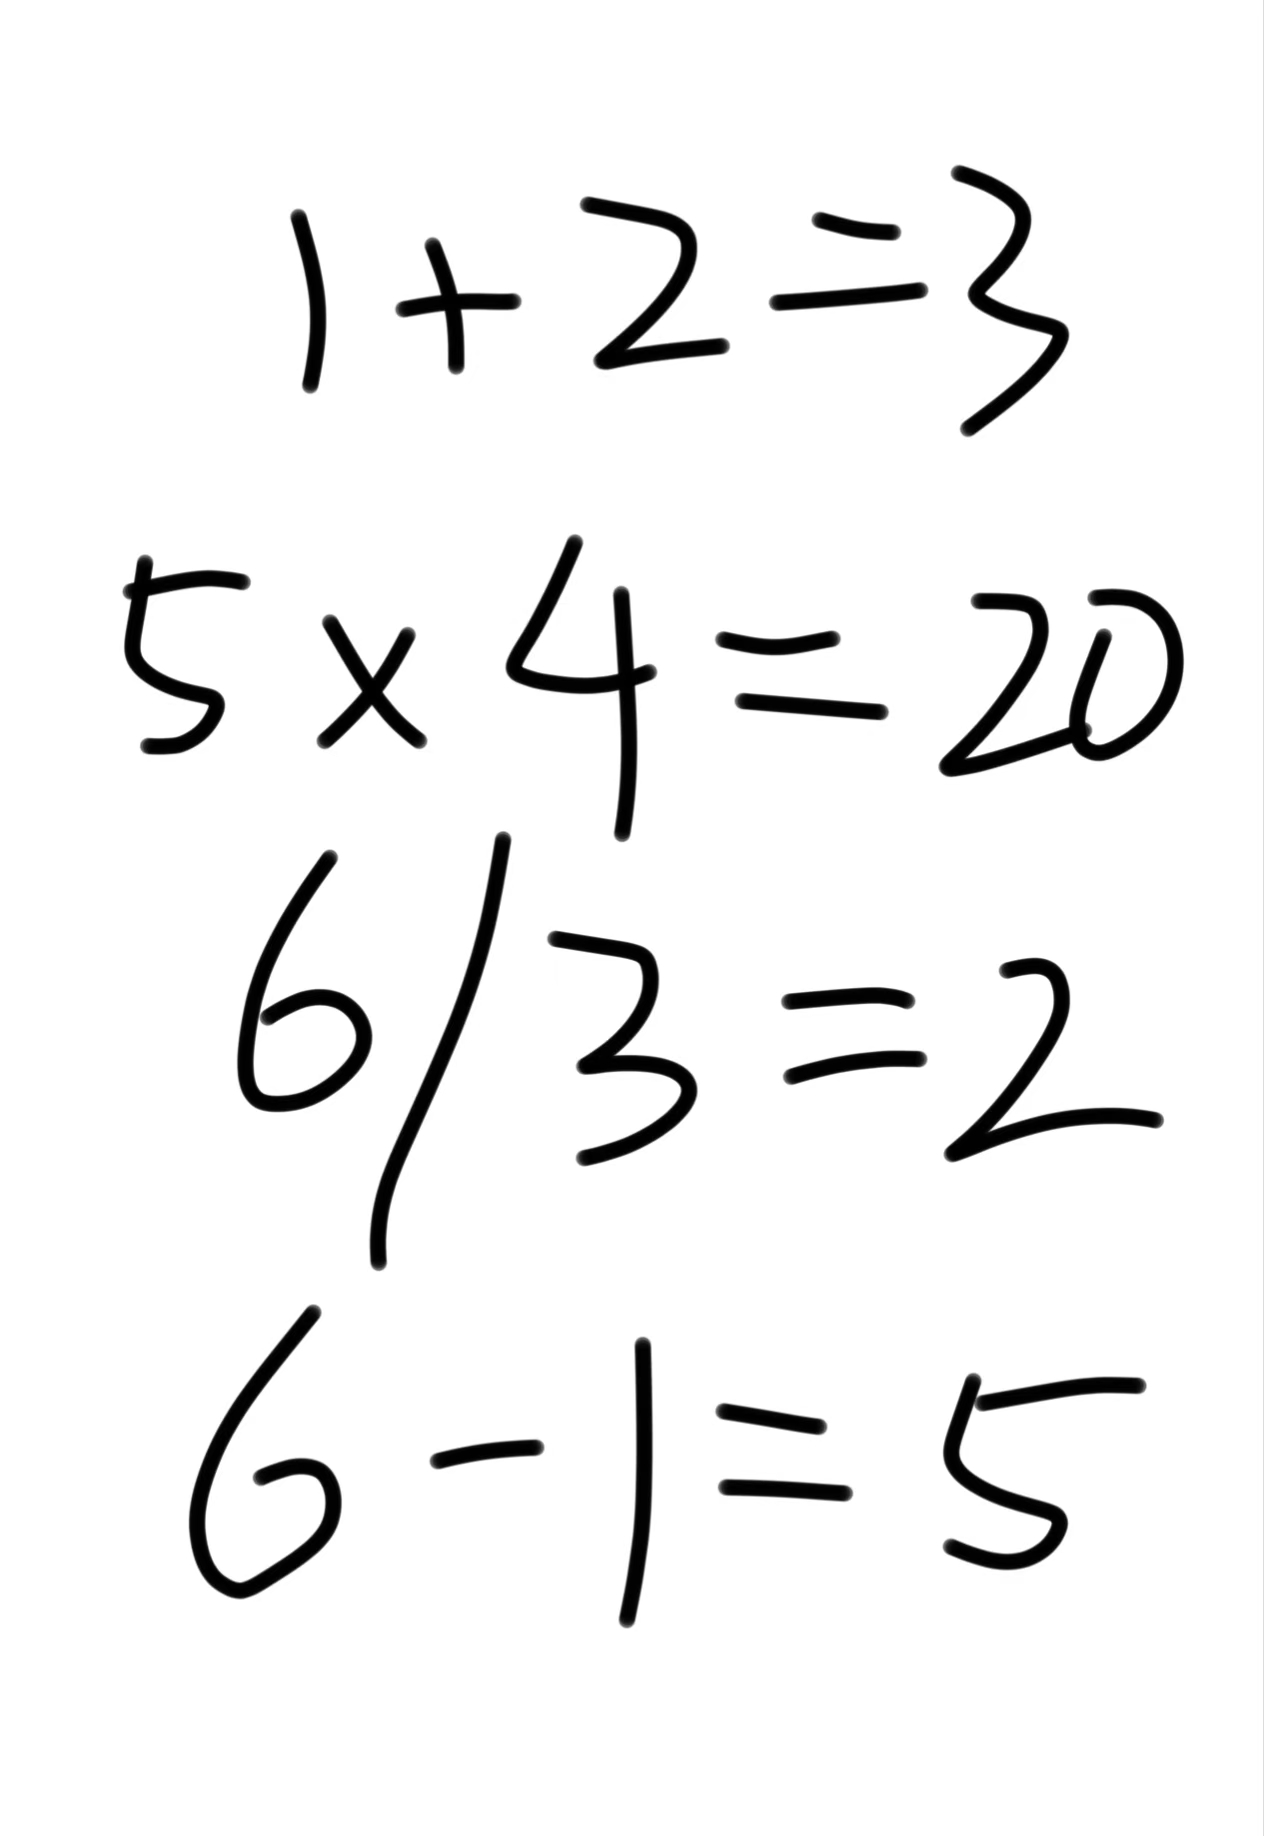 1+2=3
5×4=20
6/3=2
6-1=5